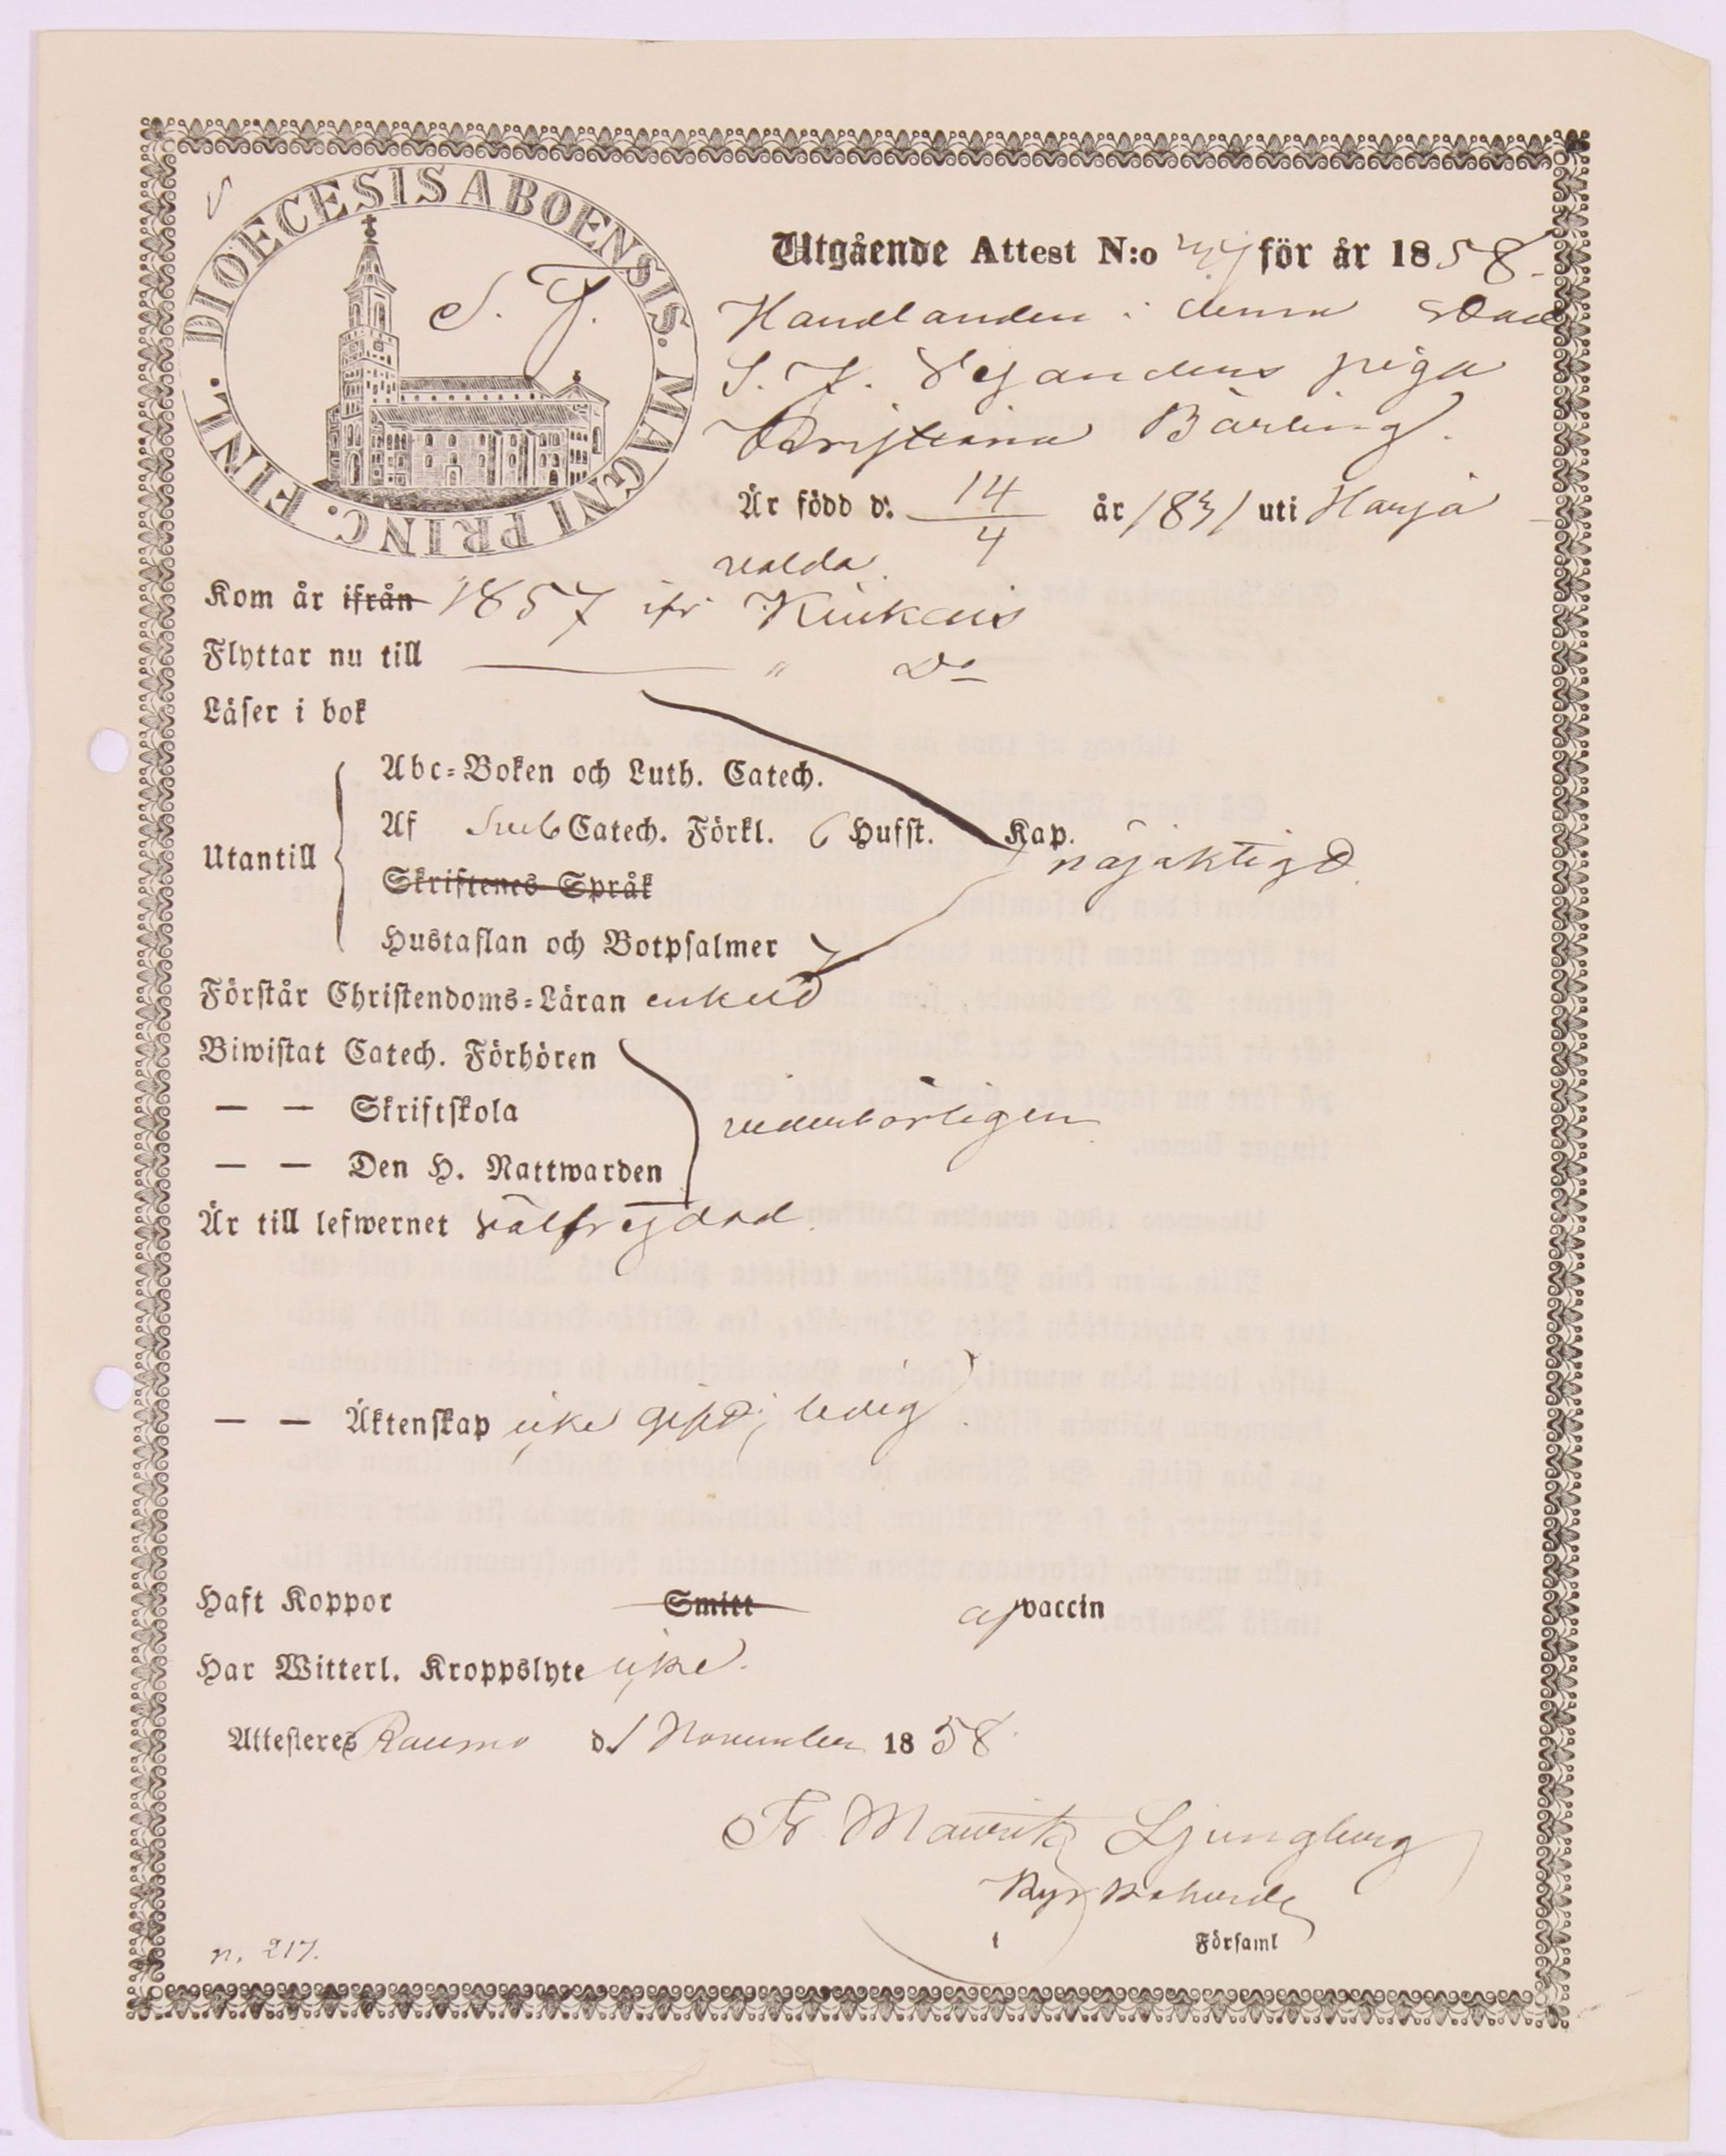 DIOECESIS ABOENSIS. MAGNI PRINC. FINL.
S. J.
Utgående Attest N:o för år 1858.
Handlanden i denna stad
S. J. piga
Kristina Bärling.
Är född d. 14/4 år 1831 uti Harja
valda.
Kom år ifrån 1857 ifr Kiukais
Flyttar nu till — " Do
Läser i bok
Abc-Boken och Luth. Catech.
Af Sveb Catech. Förkl. 6 Hufst. Kap.
nöjaktigt
Utantill
Skriftenes Språk
Hustaflan och Botpsalmer
Förstår Christendoms-Läran enkelt
Biwistat Catech. Förhören
— — Skriftskola
vederbörligen
— — Den H. Nattwarden
Är till lefwernet välfrejdad.
— — Äktenskap icke gift, ledig.
Haft Koppor Smitt af vaccin
Har Witterl. Kroppslyte icke.
Attesteres Raumo d. 1 November 1858.
Fr. Mauritz Ljungberg
Kyrkoherde
i Församl
n. 217.